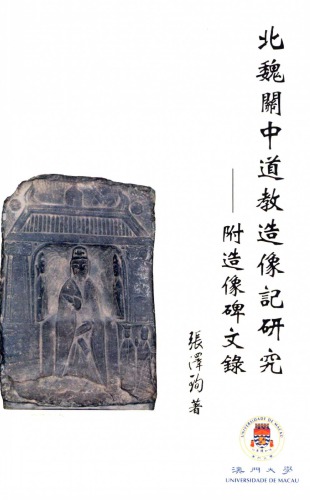 北魏關中道教造像記研究
——附造像碑文錄
張澤珣著
UNIVERSIDADE DE MACAU
澳門大學
UNIVERSIDADE DE MACAU